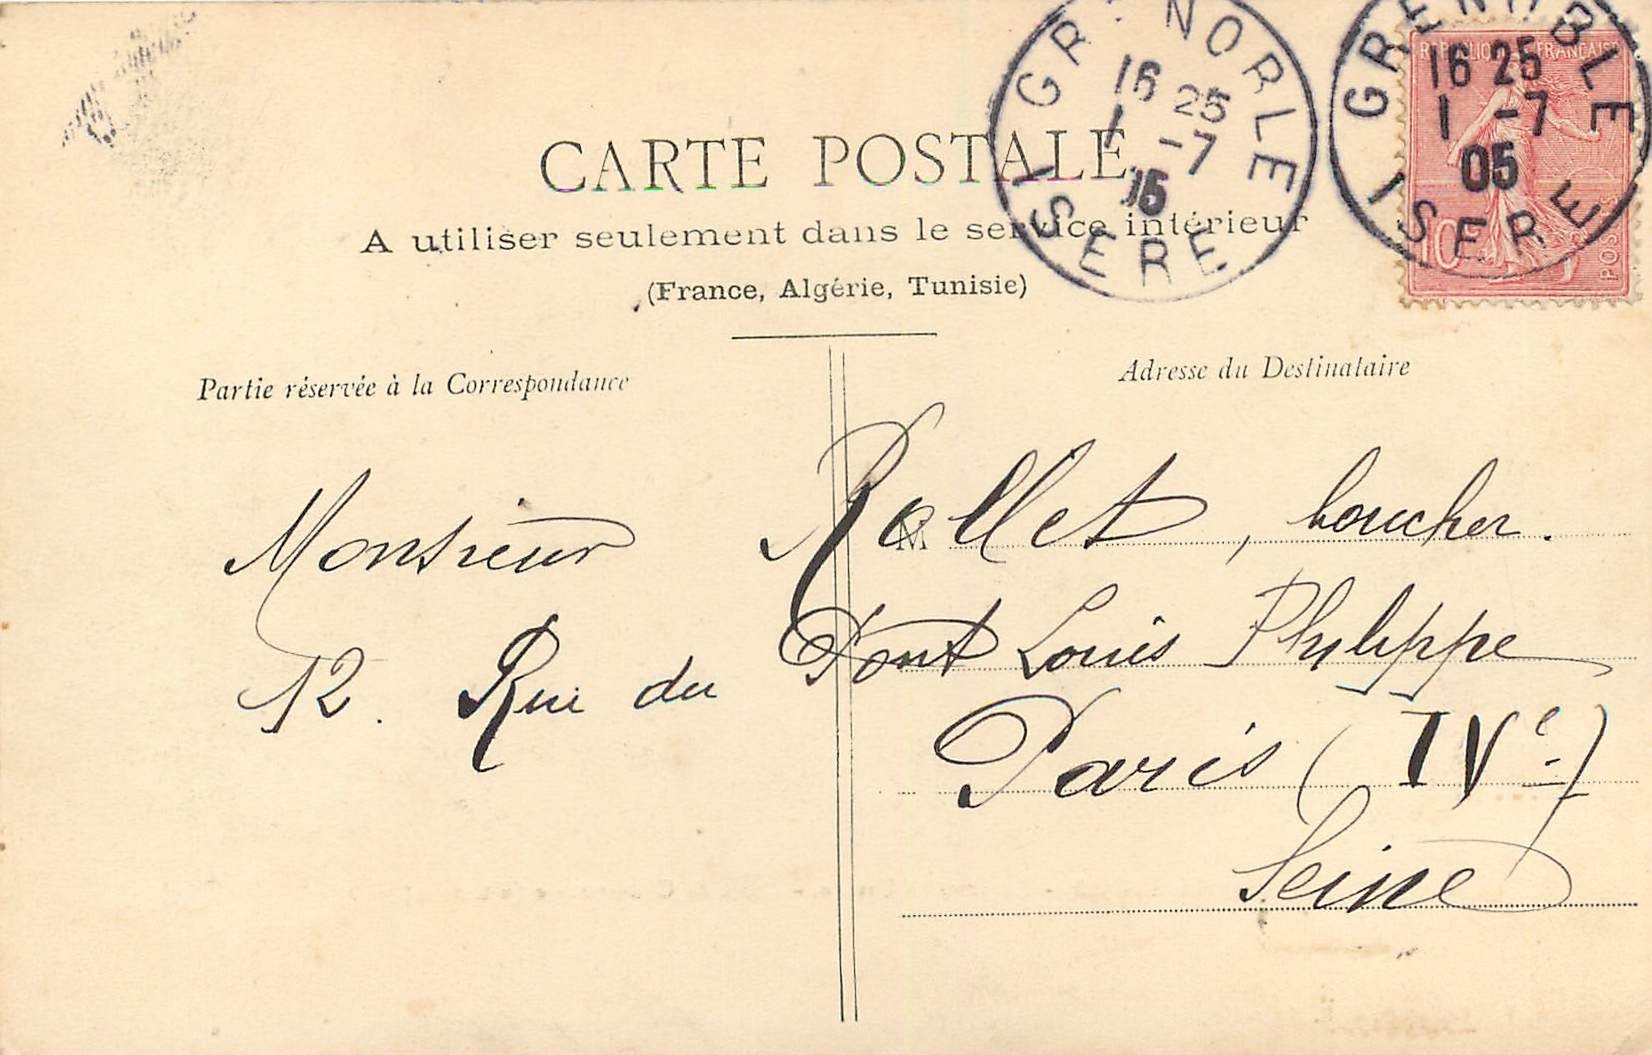 GRENOBLE
16 25
1 -7
05
ISERE
GRENOBLE
16 25
1 -7
05
ISERE
REPUBLIQUE FRANCAISE
10
POSTES
CARTE POSTALE
A utiliser seulement dans le service intérieur
(France, Algérie, Tunisie)
Partie réservée à la Correspondance
Adresse du Destinataire
M
Monsieur Rollet, boucher.
12. Rue du Pont Louis Philippe
Paris (IVe)
Seine